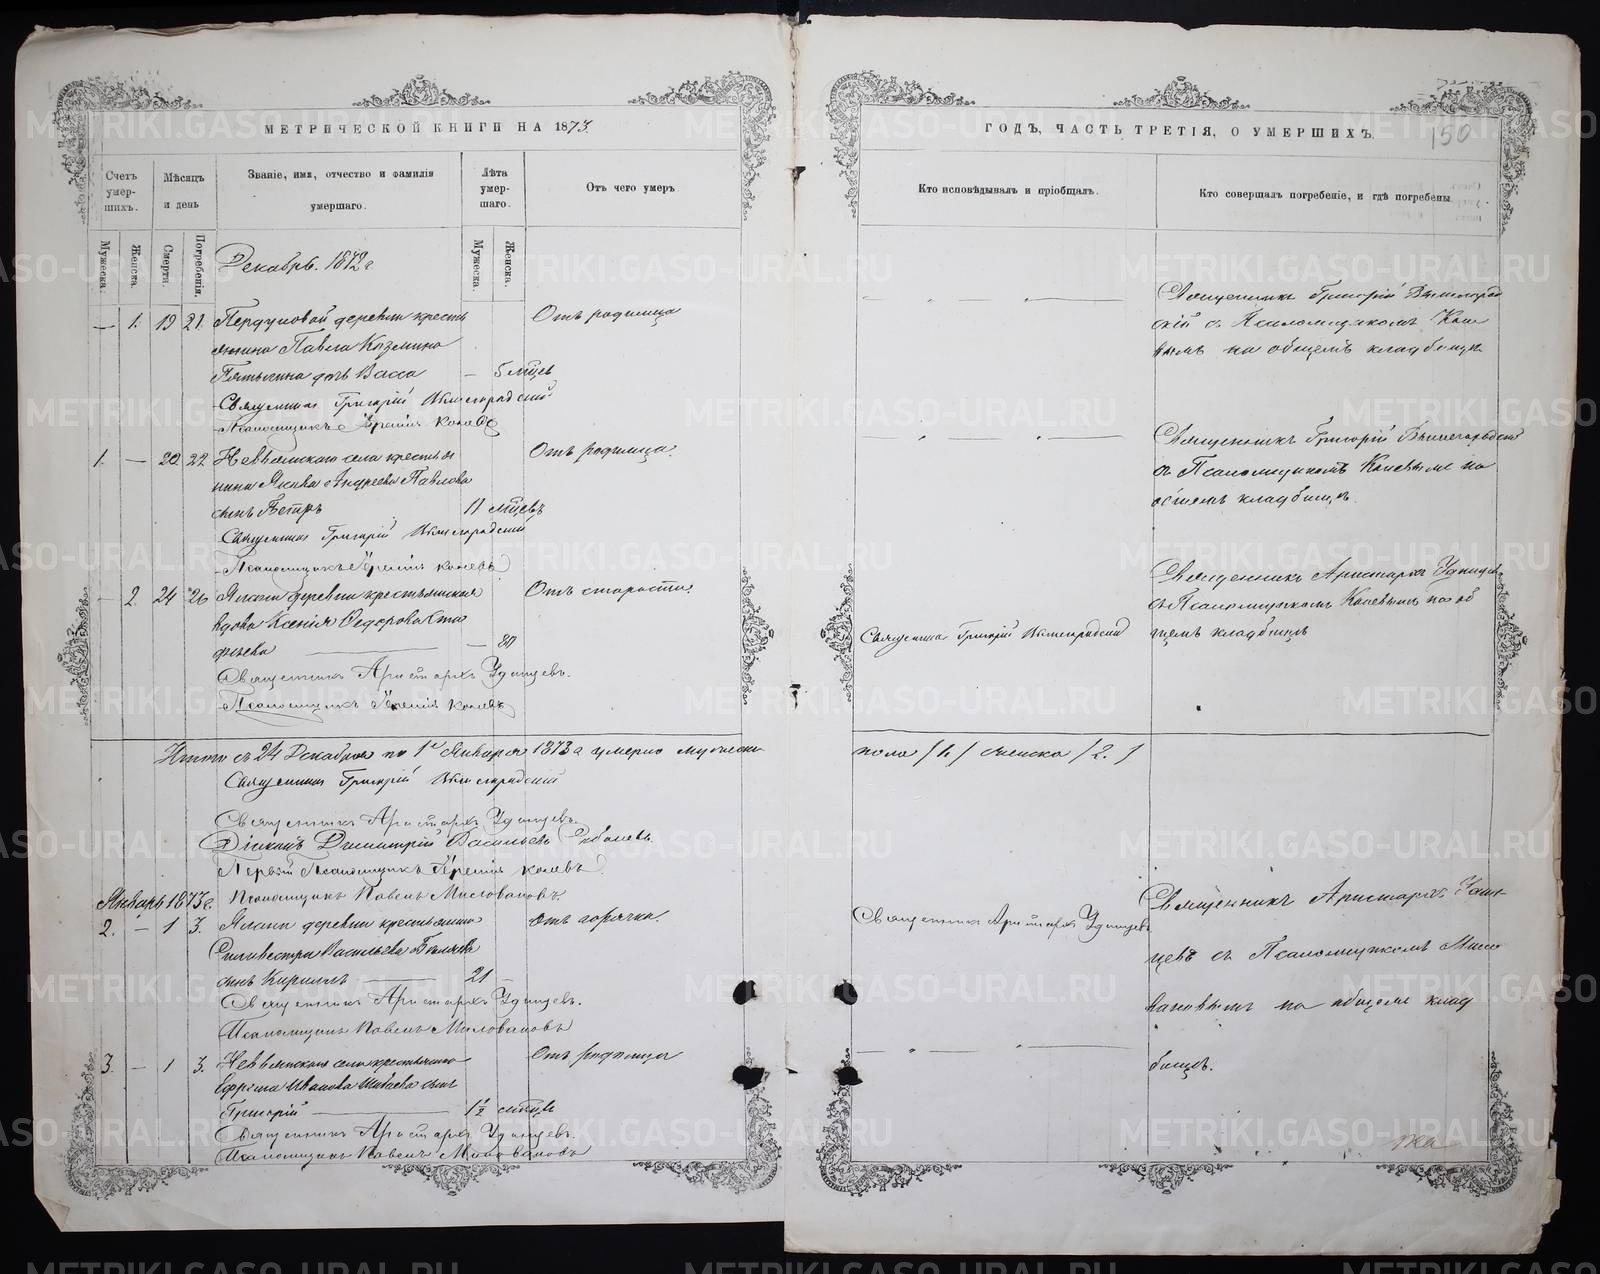 МЕТРИЧЕСКОЙ КНИГИ НА 1873.
Счетъ умер- шихъ.
Мѣсяцъ и день
Званіе, имя, отчество и фамилія умершаго.
Лѣта умер- шаго.
Отъ чего умеръ
Мужеска.
Женска.
Смерти.
Погребенія.
Мужеска.
Женска.
Декабрь. 1872 г
— 1. 19 21. деревни кресть Отъ родимца
янина Павла Козмина
дочь Васса — 5 мѣцев
Священникъ Григорій Вышегородскій
Псаломщикъ Коневъ
1. — 20 22 Невьянскаго села крестья Отъ родимца.
нина Якова Андреева Павлова
сынъ Петръ 11 мѣцевъ
Священникъ Григорій Вышегородскій
Псаломщикъ Коневъ
— 2. 24 26 деревни крестьянская Отъ старости.
вдова Ксенія Ѳедорова
— 80
Священникъ Аристархъ Удинцевъ.
Псаломщикъ Коневъ
Итого съ 24 Декабря по 1е Января 1873 г умерло мужеска
Священникъ Григорій Вышегородскій
Священникъ Аристархъ Удинцевъ.
Діаконъ Димитрій Васильевъ
Первый Псаломщикъ Коневъ
Январь 1873 г. Псаломщикъ Павелъ Миловановъ
2. — 1 3. деревни крестьянина Отъ горячки.
Силивестра Васильева
сынъ Кириллъ — 21 —
Священникъ Аристархъ Удинцевъ.
Псаломщикъ Павелъ Миловановъ
3. — 1 3. Невьянскаго села крестьянина Отъ родимца
Ефрема Иванова сынъ
Григорій — 1 1/2 мѣцев
Священникъ Аристархъ Удинцевъ.
Псаломщикъ Павелъ Миловановъ
ГОДЪ, ЧАСТЬ ТРЕТІЯ, О УМЕРШИХЪ.
150
Кто исповѣдывалъ и пріобщалъ.
Кто совершалъ погребеніе, и гдѣ погребены.
Священникъ Григорій Вышегород
скій съ Псаломщикомъ Коне
вымъ на общемъ кладбищѣ
Священникъ Григорій Вышегородскій
съ Псаломщикомъ Коневымъ на
общемъ кладбищѣ.
Священникъ Аристархъ Удинцев
съ Псаломщикомъ Коневымъ на об
Священникъ Григорій Вышегородскій
щемъ кладбищѣ
пола /1./ женска /2./
Священникъ Аристархъ Удин-
Священникъ Аристархъ Удинцевъ
цевъ съ Псаломщикомъ Мило
вановымъ на общемъ клад
бищѣ.
METRIKI.GASO-URAL.RU